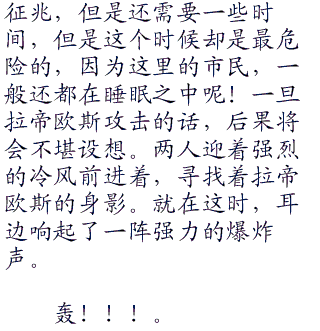 征兆，但是还需要一些时
间，但是这个时候却是最危
险的，因为这里的市民，一
般还都在睡眠之中呢！一旦
拉帝欧斯攻击的话，后果将
会不堪设想。两人迎着强烈
的冷风前进着，寻找着拉帝
欧斯的身影。就在这时，耳
边响起了一阵强力的爆炸
声。
轰！！！。